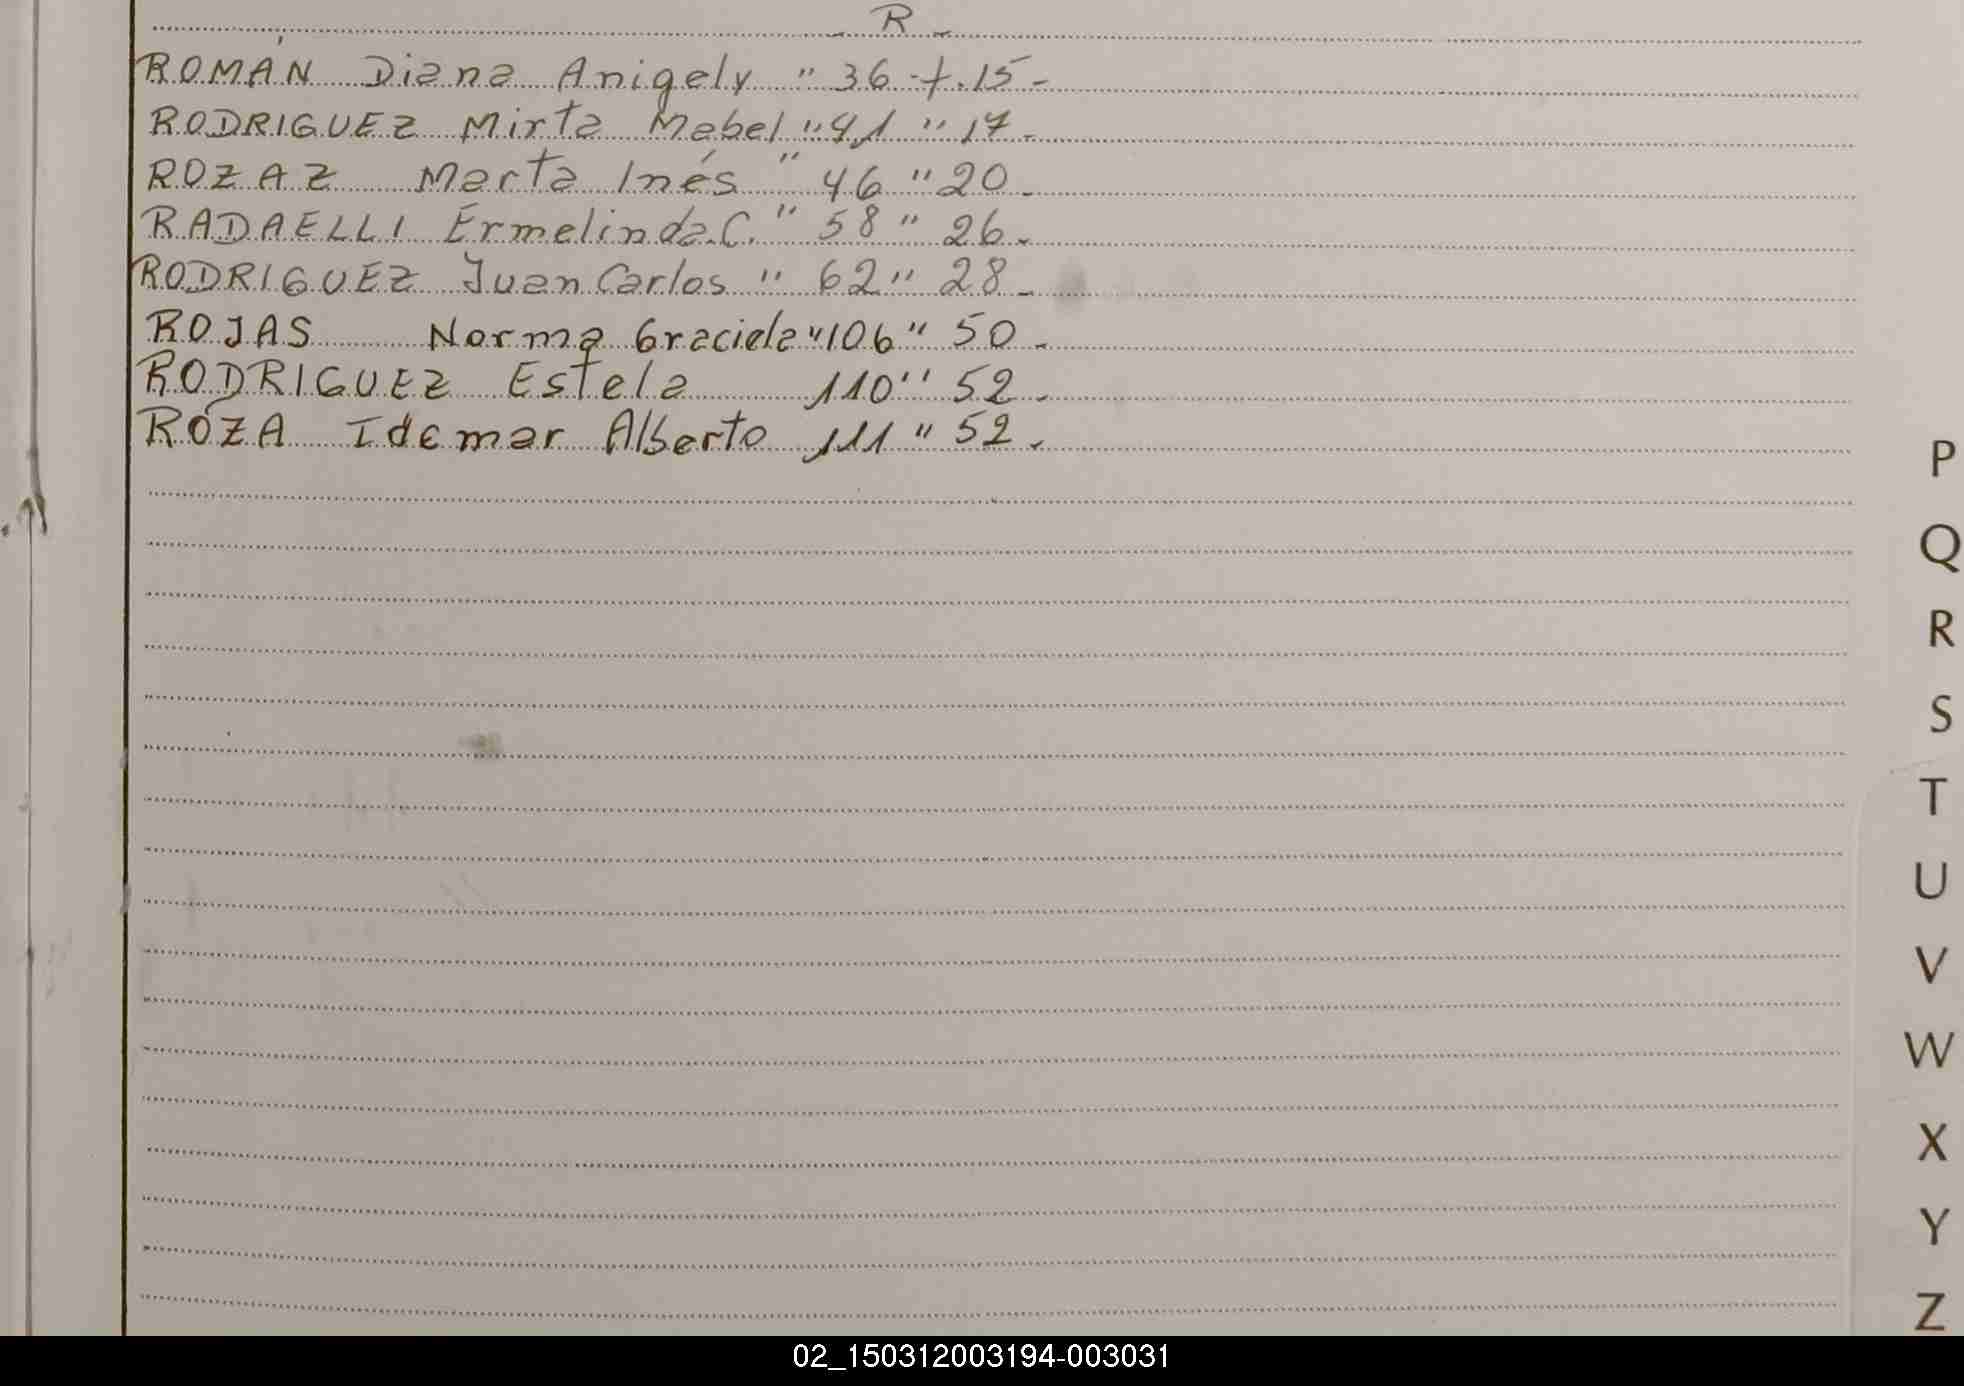 - R -
ROMÁN Diana Anigely " 36 f. 15-
RODRIGUEZ Mirta Mabel " 41 " 17-
ROZAZ Marta Inés " 46 " 20-
RADAELLI Ermelinda C. " 58 " 26-
RODRIGUEZ Juan Carlos " 62 " 28-
ROJAS Norma Graciela " 106 " 50-
RODRIGUEZ Estela 110 " 52-
ROZA Idemar Alberto 111 " 52-
P
Q
R
S
T
U
V
W
X
Y
Z
02_150312003194-003031